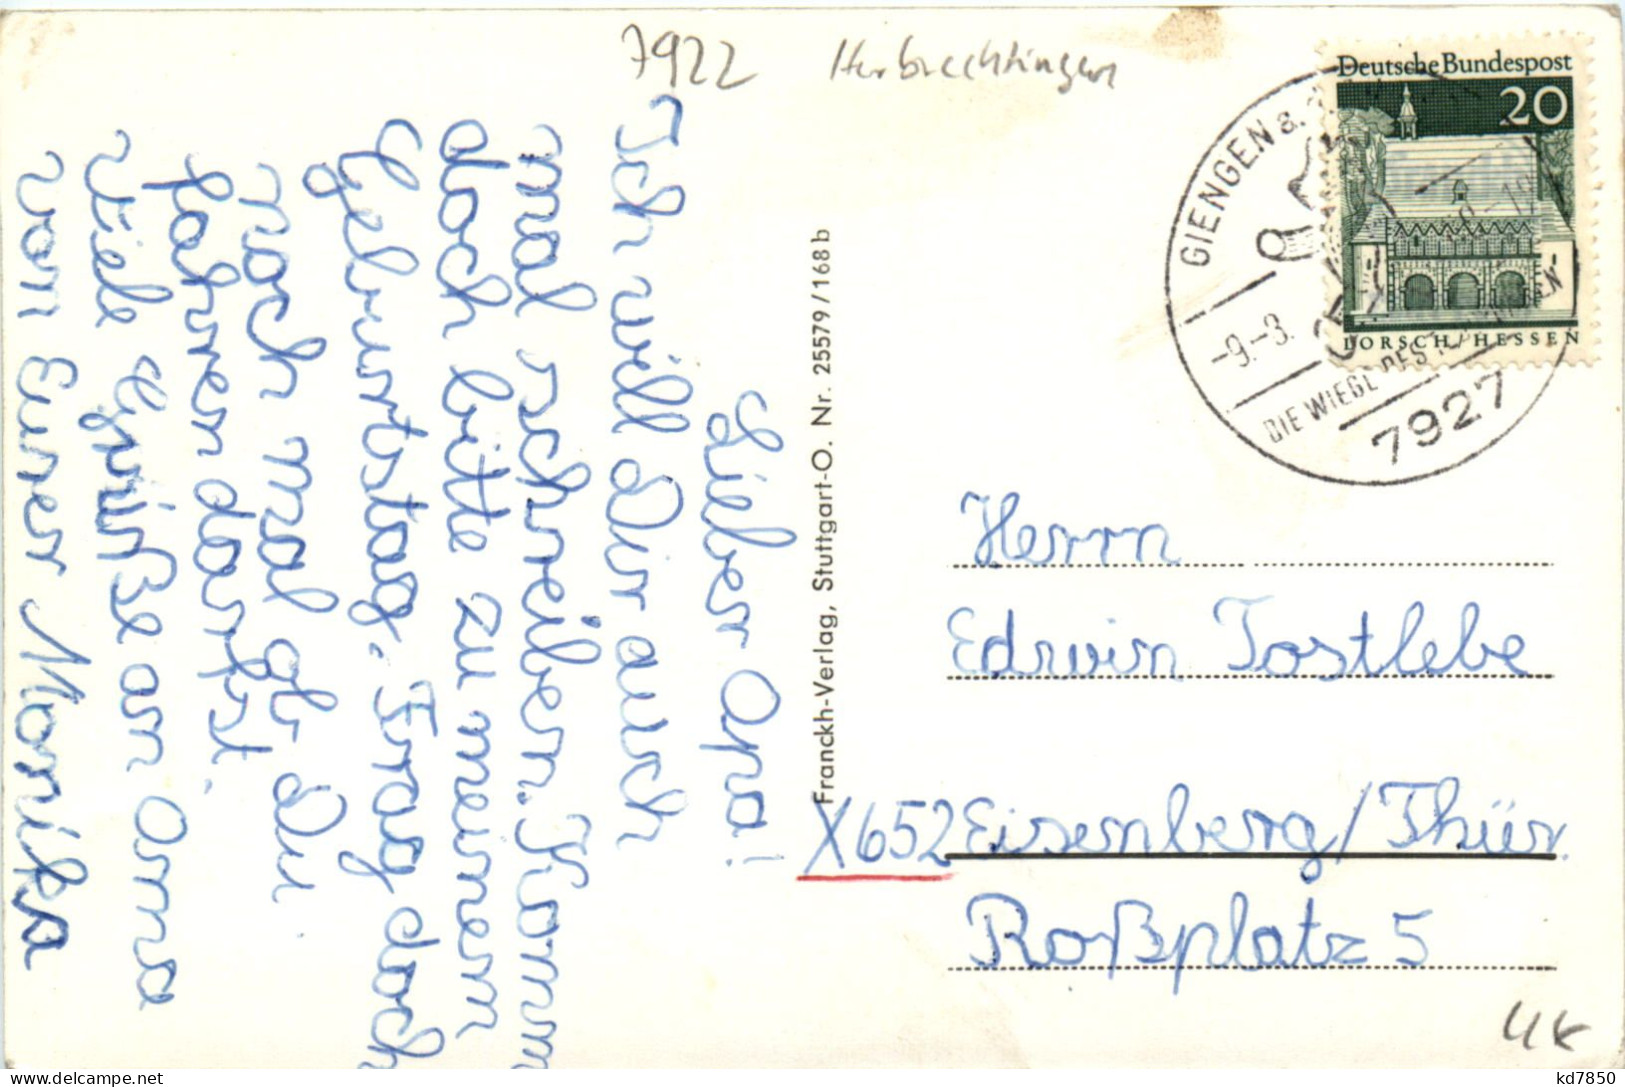 7922 Herbrechtingen
Lieber Opa!
Ich will Dir auch
mal schreiben. Komm
doch bitte zu meinem
Geburtstag. Frag doch
noch mal ob Du
fahren darfst.
Viele Grüße an Oma
von Eurer Monika
Franckh-Verlag, Stuttgart-O. Nr. 25579/168b
Deutsche Bundespost
20
LORSCH/HESSEN
GIENGEN a.
-9.-3.
DIE WIEGE DES
7927
Herrn
Edwin Tostlebe
X652 Eisenberg/Thür.
Roßplatz 5
kd7850